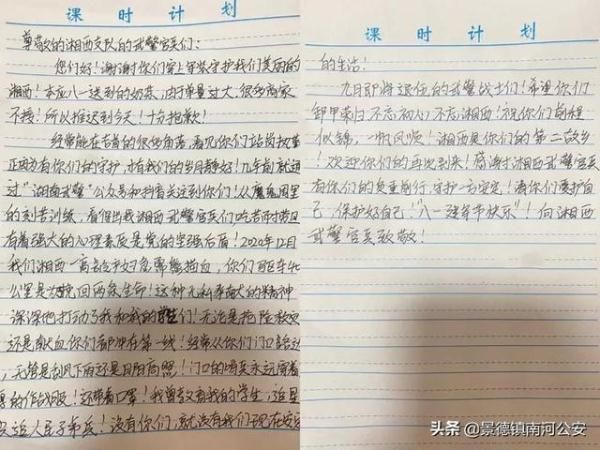 课时计划
尊敬的湘西支队的武警官兵们：
您们好！谢谢你们穿上军装守护我们美丽的
湘西！本应八一送到的奶茶，由于单量过大，很多商家
不接！所以推迟到今天！十分抱歉！
经常能在吉首的很多角落，看见你们站岗执勤
正因为有你们的守护，才有我们的岁月静好！几年前就通
过“湖南武警”公众号和抖音关注到你们！从魔鬼周里
的刻苦训练，看得出我湘西武警官兵们吃苦耐劳且
有着强大的心理素质是党的坚强后盾！2020年12月
我们湘西一高危产妇急需熊猫血，你们驱车40
公里是为挽回两条生命！这种无私奉献的精神
深深地打动了我和我的学生们！无论是抢险救灾
还是献血你们都冲在第一线！经常从你们门口路过
，无论是刮风下雨还是日阳高照！门口的哨兵永远穿着
厚的作战服！还带着口罩！我曾教育我的学生，追星
就追人民子弟兵！没有你们，就没有我们现在安定
课时计划
的生活！
九月即将退伍的武警战士们！希望你们
卸甲荣归不忘初心！不忘湘西！祝你们前程
似锦，一帆风顺！湘西是你们的第二故乡
！欢迎你们的再次到来！感谢湘西武警官兵
有你们的负重前行，守护一方安定！请你们爱护自
己，保护好自己！“八一建军节快乐”！向湘西
武警官兵致敬！
头条 @景德镇南河公安